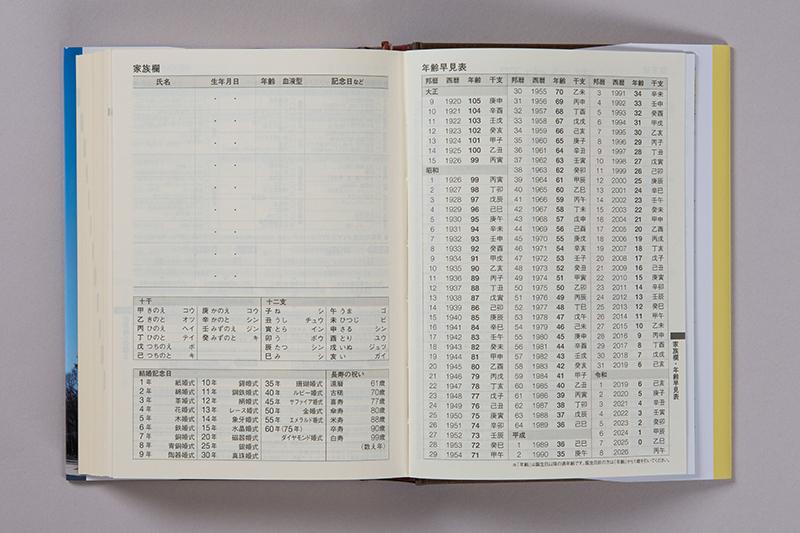 家族欄
氏名 生年月日 年齢 血液型 記念日など
十干
甲 きのえ コウ 庚 かのえ コウ
乙 きのと オツ 辛 かのと シン
丙 ひのえ ヘイ 壬 みずのえ ジン
丁 ひのと テイ 癸 みずのと キ
戊 つちのえ ボ
己 つちのと キ
十二支
子 ね シ 午 うま ゴ
丑 うし チュウ 未 ひつじ ビ
寅 とら イン 申 さる シン
卯 う ボウ 酉 とり ユウ
辰 たつ シン 戌 いぬ ジュツ
巳 み シ 亥 い ガイ
結婚記念日
1年 紙婚式 10年 錫婚式 35年 珊瑚婚式
2年 綿婚式 11年 鋼鉄婚式 40年 ルビー婚式
3年 革婚式 12年 絹婚式 45年 サファイア婚式
4年 花婚式 13年 レース婚式 50年 金婚式
5年 木婚式 14年 象牙婚式 55年 エメラルド婚式
6年 鉄婚式 15年 水晶婚式 60年(75年)
7年 銅婚式 20年 磁器婚式 ダイヤモンド婚式
8年 青銅婚式 25年 銀婚式
9年 陶器婚式 30年 真珠婚式
長寿の祝い
還暦 61歳
古稀 70歳
喜寿 77歳
傘寿 80歳
米寿 88歳
卒寿 90歳
白寿 99歳
(数え年)
年齢早見表
邦暦 西暦 年齢 干支 邦暦 西暦 年齢 干支 邦暦 西暦 年齢 干支
大正
9 1920 105 庚申
10 1921 104 辛酉
11 1922 103 壬戌
12 1923 102 癸亥
13 1924 101 甲子
14 1925 100 乙丑
15 1926 99 丙寅
昭和
1 1926 99 丙寅
2 1927 98 丁卯
3 1928 97 戊辰
4 1929 96 己巳
5 1930 95 庚午
6 1931 94 辛未
7 1932 93 壬申
8 1933 92 癸酉
9 1934 91 甲戌
10 1935 90 乙亥
11 1936 89 丙子
12 1937 88 丁丑
13 1938 87 戊寅
14 1939 86 己卯
15 1940 85 庚辰
16 1941 84 辛巳
17 1942 83 壬午
18 1943 82 癸未
19 1944 81 甲申
20 1945 80 乙酉
21 1946 79 丙戌
22 1947 78 丁亥
23 1948 77 戊子
24 1949 76 己丑
25 1950 75 庚寅
26 1951 74 辛卯
27 1952 73 壬辰
28 1953 72 癸巳
29 1954 71 甲午
30 1955 70 乙未
31 1956 69 丙申
32 1957 68 丁酉
33 1958 67 戊戌
34 1959 66 己亥
35 1960 65 庚子
36 1961 64 辛丑
37 1962 63 壬寅
38 1963 62 癸卯
39 1964 61 甲辰
40 1965 60 乙巳
41 1966 59 丙午
42 1967 58 丁未
43 1968 57 戊申
44 1969 56 己酉
45 1970 55 庚戌
46 1971 54 辛亥
47 1972 53 壬子
48 1973 52 癸丑
49 1974 51 甲寅
50 1975 50 乙卯
51 1976 49 丙辰
52 1977 48 丁巳
53 1978 47 戊午
54 1979 46 己未
55 1980 45 庚申
56 1981 44 辛酉
57 1982 43 壬戌
58 1983 42 癸亥
59 1984 41 甲子
60 1985 40 乙丑
61 1986 39 丙寅
62 1987 38 丁卯
63 1988 37 戊辰
64 1989 36 己巳
平成
1 1989 36 己巳
2 1990 35 庚午
3 1991 34 辛未
4 1992 33 壬申
5 1993 32 癸酉
6 1994 31 甲戌
7 1995 30 乙亥
8 1996 29 丙子
9 1997 28 丁丑
10 1998 27 戊寅
11 1999 26 己卯
12 2000 25 庚辰
13 2001 24 辛巳
14 2002 23 壬午
15 2003 22 癸未
16 2004 21 甲申
17 2005 20 乙酉
18 2006 19 丙戌
19 2007 18 丁亥
20 2008 17 戊子
21 2009 16 己丑
22 2010 15 庚寅
23 2011 14 辛卯
24 2012 13 壬辰
25 2013 12 癸巳
26 2014 11 甲午
27 2015 10 乙未
28 2016 9 丙申
29 2017 8 丁酉
30 2018 7 戊戌
31 2019 6 己亥
令和
1 2019 6 己亥
2 2020 5 庚子
3 2021 4 辛丑
4 2022 3 壬寅
5 2023 2 癸卯
6 2024 1 甲辰
7 2025 0 乙巳
8 2026 丙午
※「年齢」は誕生日以降の満年齢です。誕生日前の方は「年齢」から1歳を引いてください。
家族欄・年齢早見表